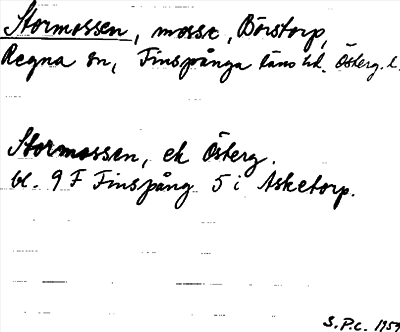 Stormossen, mosse, Börstorp,
Regna sn, Finspånga läns hd. Österg. l.
Stormossen, ek Österg.
bl. 9 F Finspång 5 i Asketorp.
S.P.C. 1959